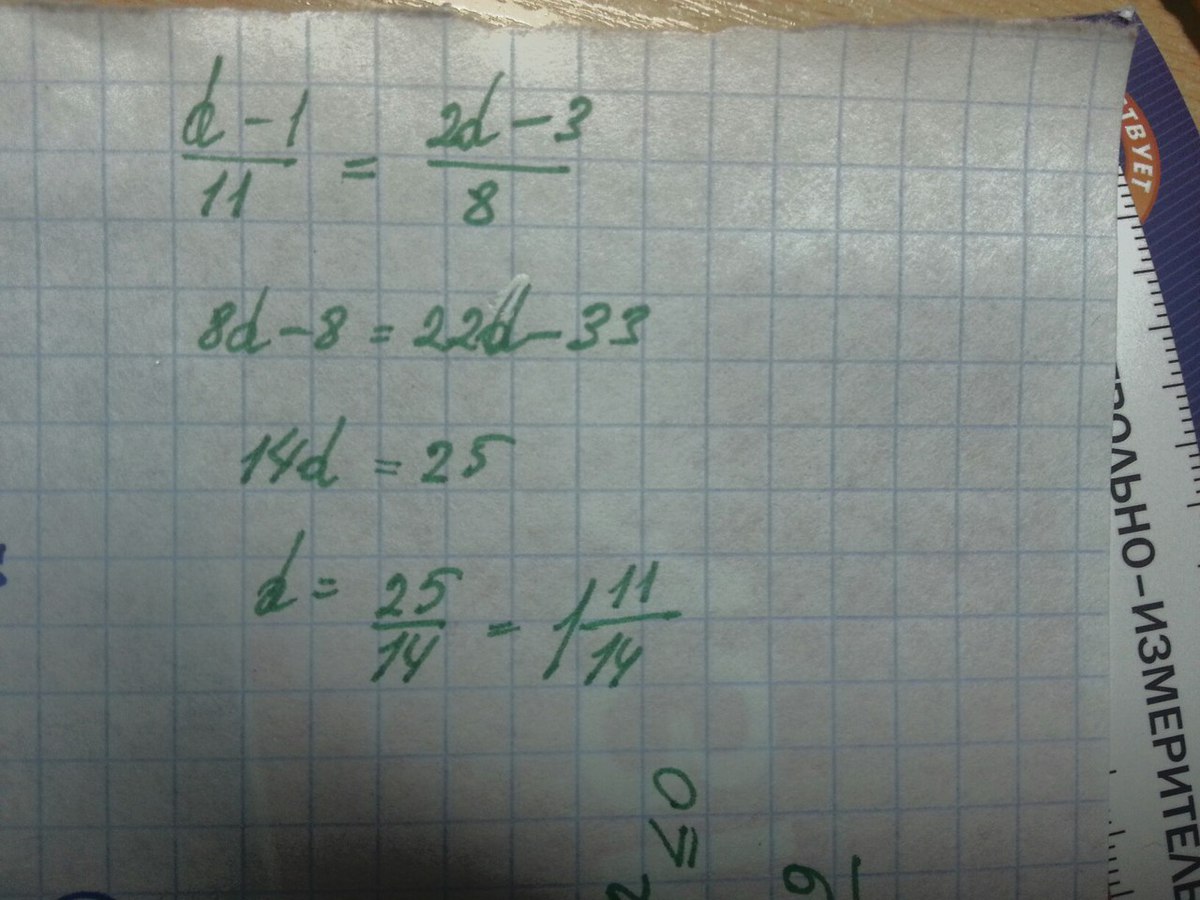 (d - 1)/11 = (2d - 3)/8
8d - 8 = 22d - 33
14d = 25
d = 25/14 = 1 11/14
≤ 0
9
ТВУЕТ
ОЛЬНО-ИЗМЕРИТЕЛЬ